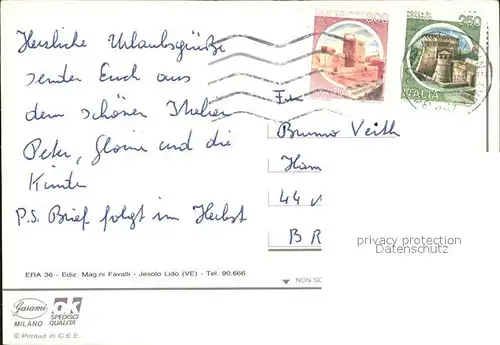 Herzliche Urlaubsgrüße
senden Euch aus
dem schönen Italien
Peter, Gloria und die
Kinder
P.S. Brief folgt im Herbst
300
250
ITALIA
Bruno Veith
Ham
44
BR
privacy protection
Datenschutz
ERA 36 - Ediz. Mag.ni Favalli - Jesolo Lido (VE) - Tel. 90.666
NON SC
Garami
MILANO
ok
SPEDISCI
QUALITA'
© Printed in C.E.E.